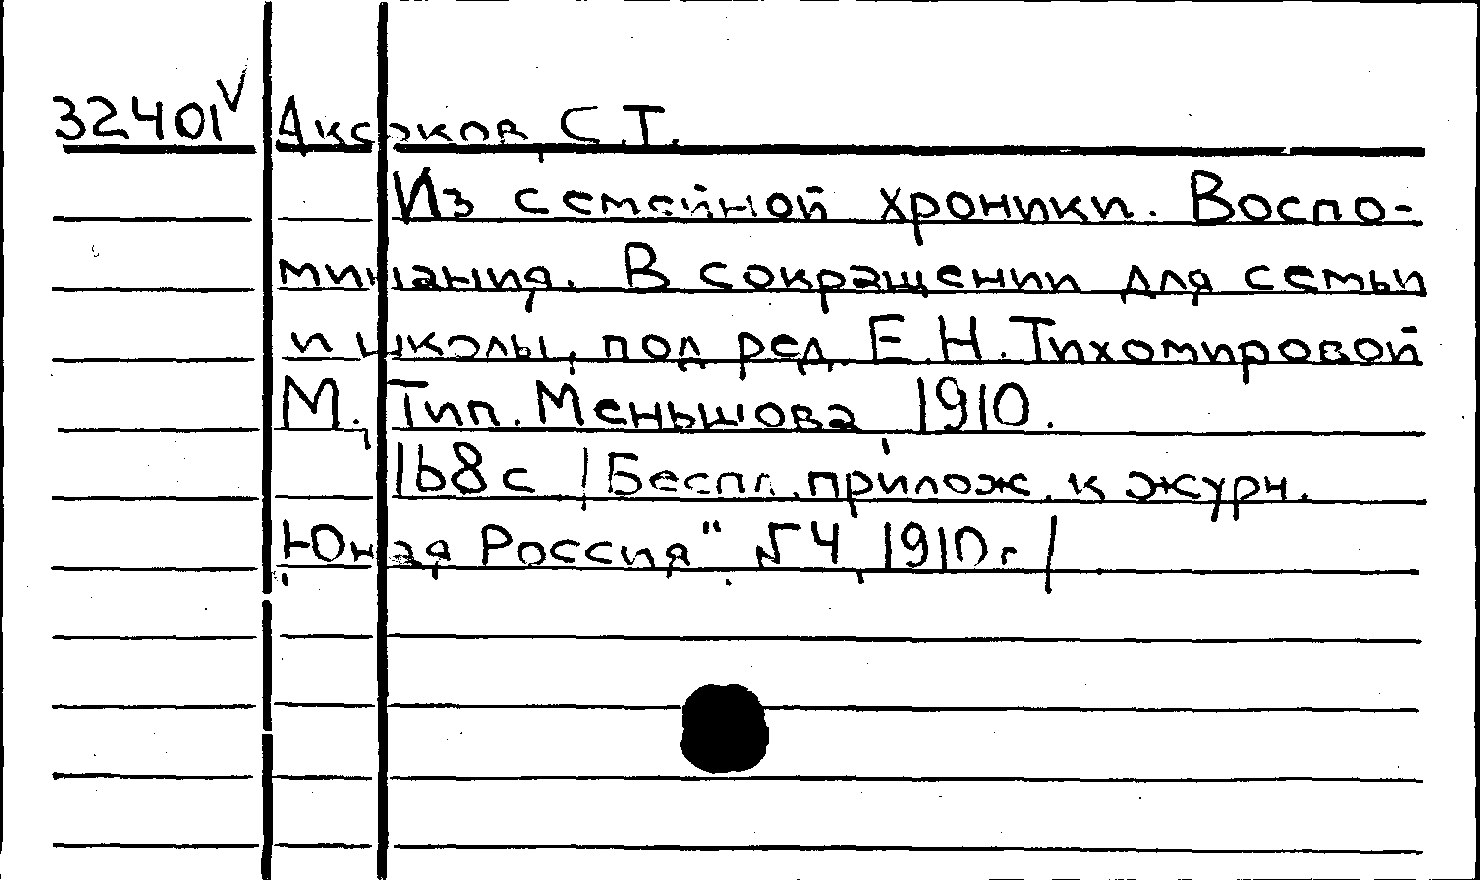 32401 V Аксаков, С.Т.
Из семейной хроники. Воспо-
минания. В сокращении для семьи
и школы, под ред. Е.Н.Тихомировой
М., Тип. Меньшова, 1910.
168 с /Беспл. прилож. к журн.
"Юная Россия" №4, 1910г./